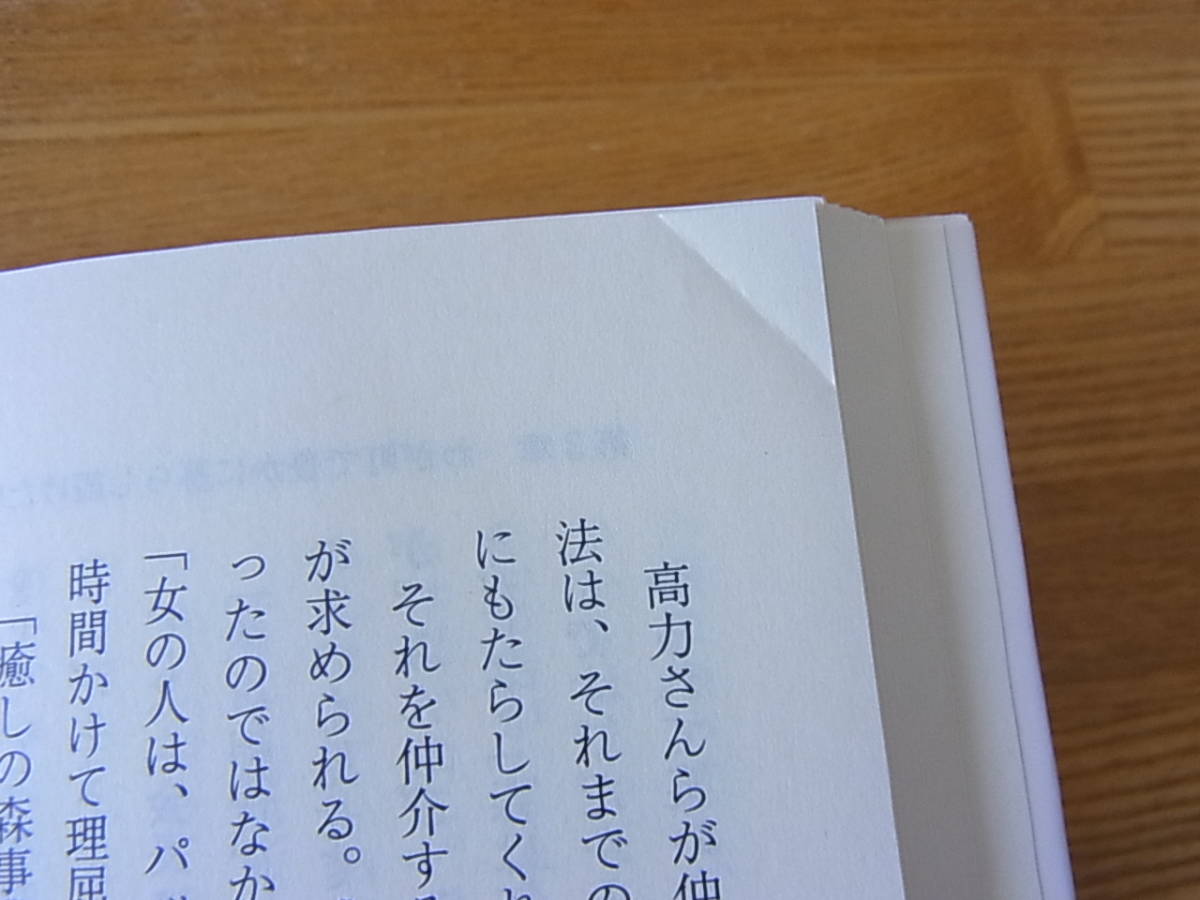 高力さんらが仲
法は、それまでの
にもたらしてくれ
それを仲介する
が求められる。
ったのではなか
「女の人は、パ
時間かけて理屈
「癒しの森事